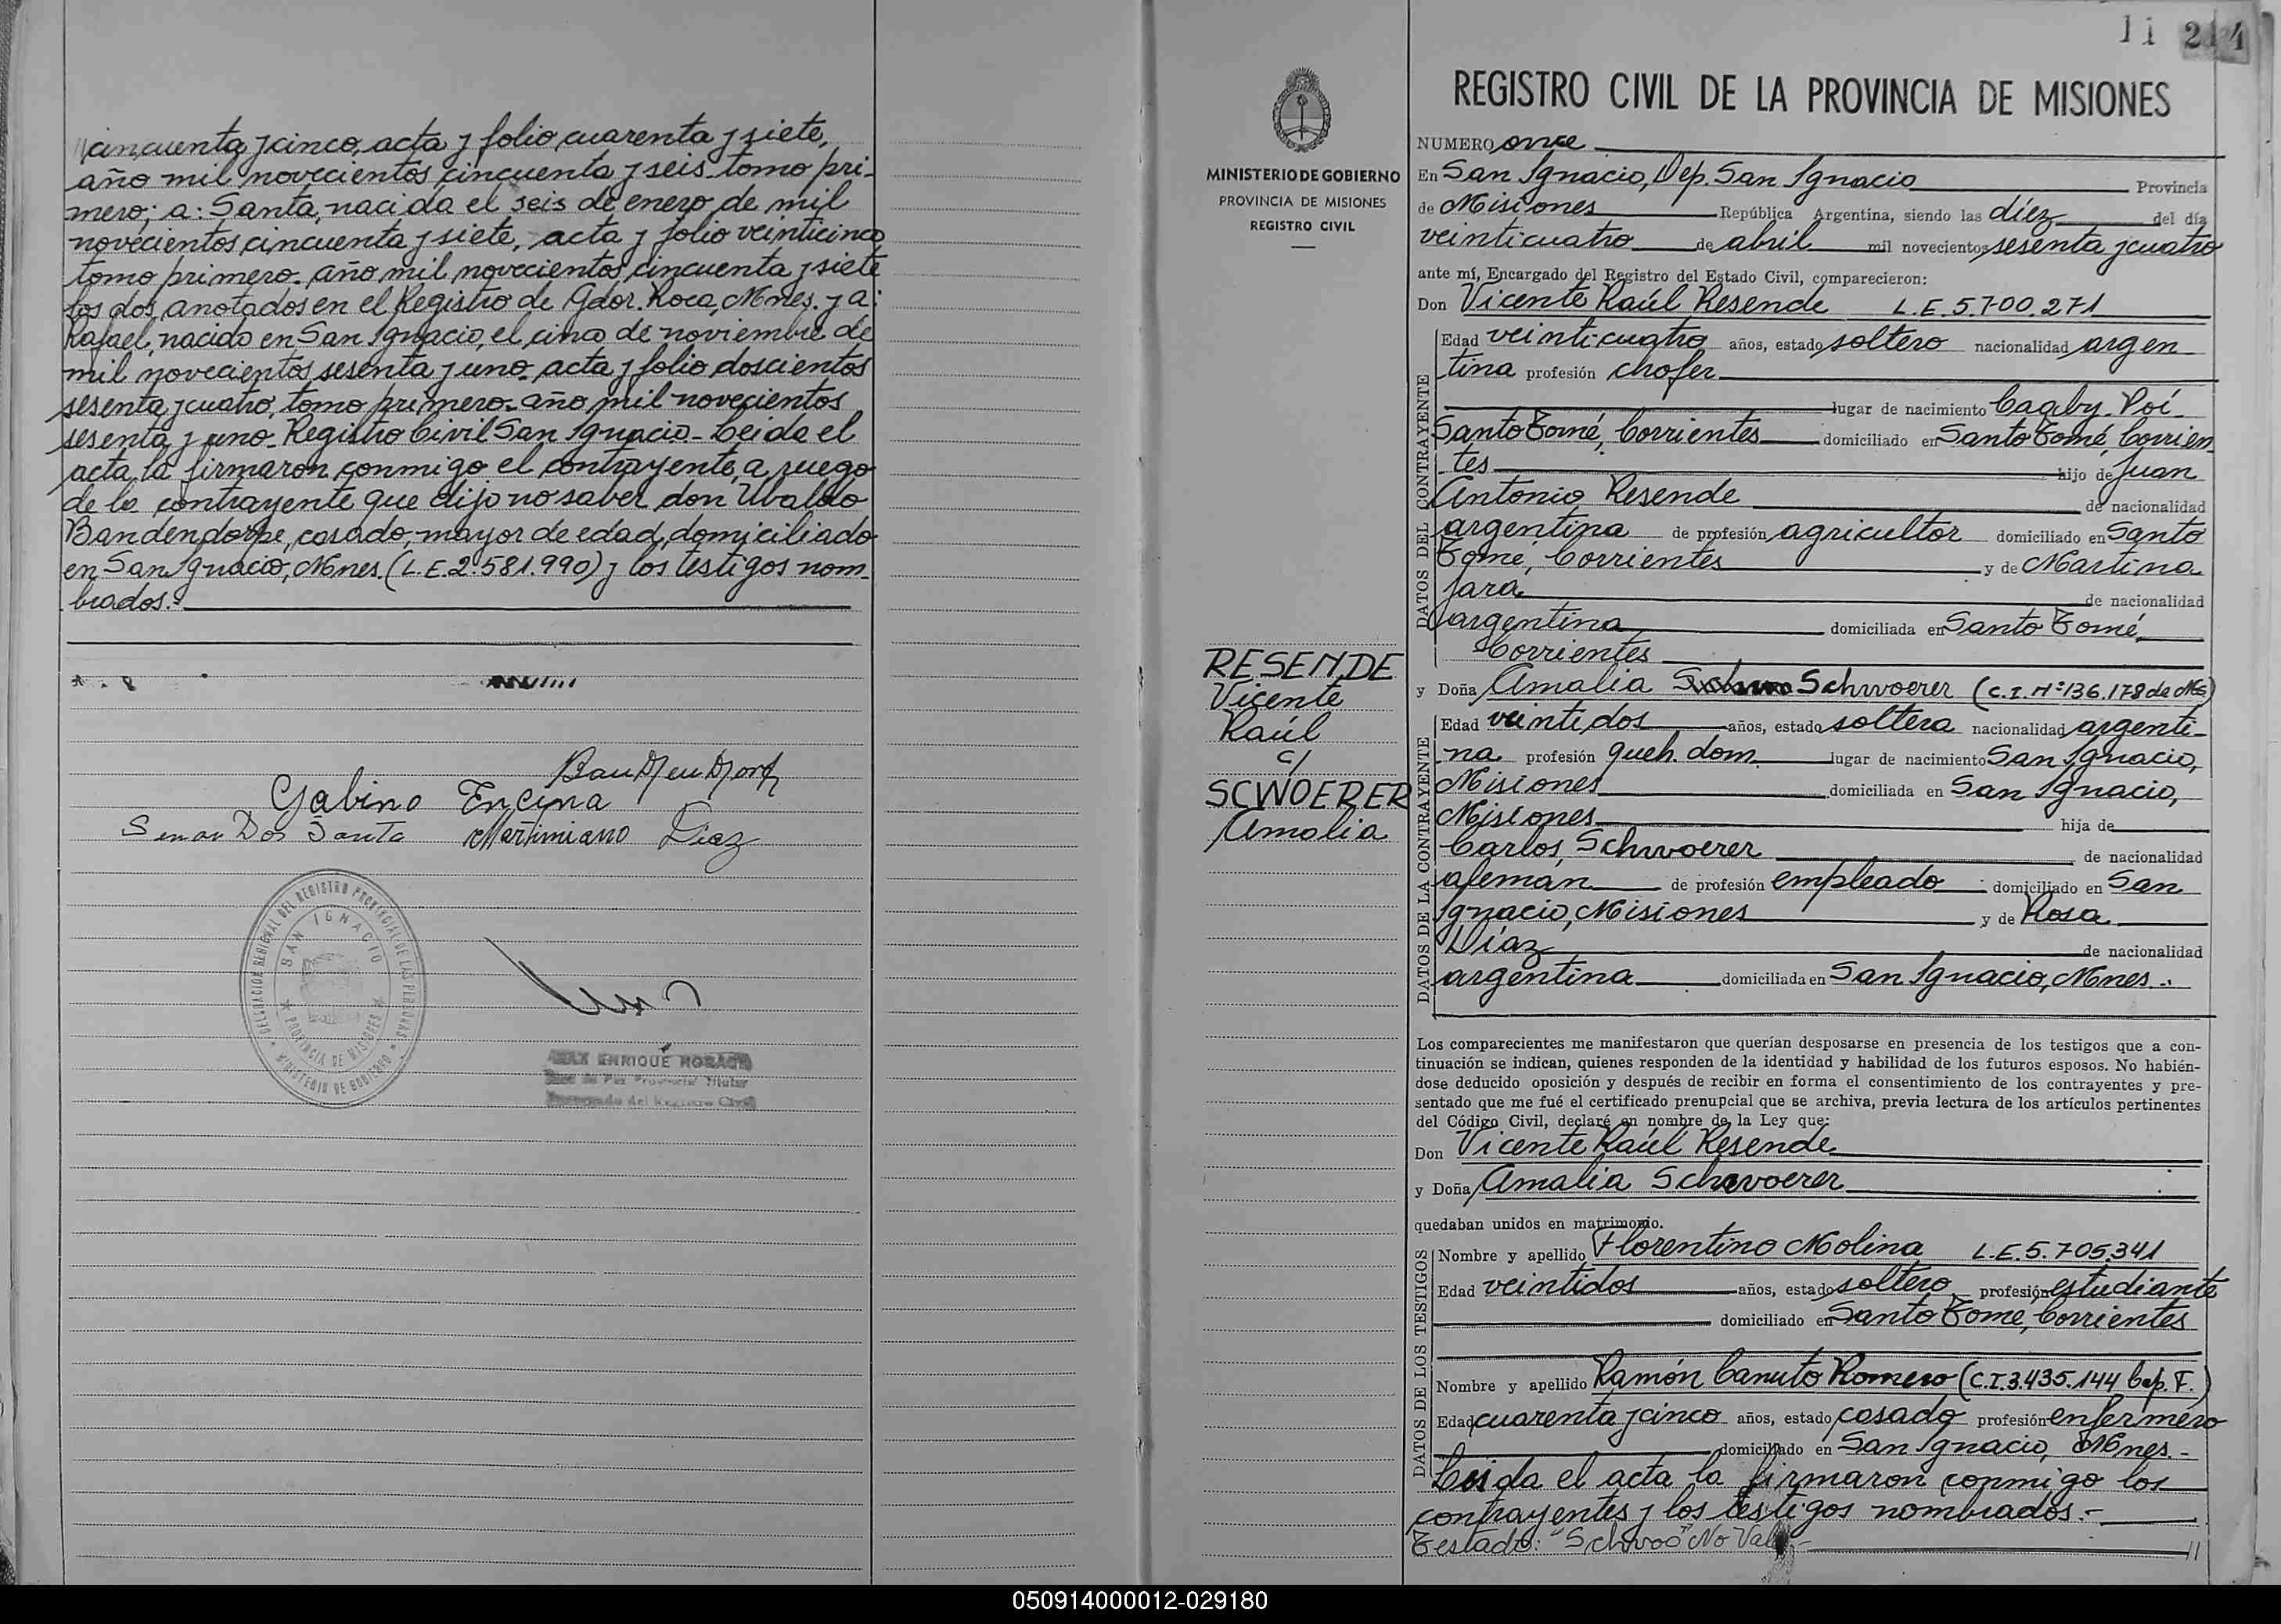 cincuenta y cinco, acta y folio cuarenta y siete,
año mil novecientos cincuenta y seis tomo pri-
mero; a: Santa, nacida el seis de enero de mil
novecientos cincuenta y siete, acta y folio veinticinco
tomo primero. año mil novecientos cincuenta y siete
los dos, anotados en el Registro de Gdor. Roca, Mnes. y a:
Rafael, nacido en San Ignacio, el cinco de noviembre de
mil novecientos sesenta y uno. acta y folio doscientos
sesenta y cuatro, tomo primero. año mil novecientos
sesenta y uno. Registro Civil San Ignacio - Leida el
acta la firmaron conmigo el contrayente, a ruego
de la contrayente que dijo no saber don Ubaldo
Bandendorpe, casado, mayor de edad, domiciliado
en San Ignacio, Mnes. (L.E. 2.581.990) y los testigos nom-
brados.-
Gabino Encina
Martimiano Diaz
DELEGACION REGIONAL DEL REGISTRO PROVINCIAL DE LAS PERSONAS
SAN IGNACIO
PROVINCIA DE MISIONES
MINISTERIO DE GOBIERNO
ENRIQUE HORACH
Juez de Paz Provincial Titular
Encargado del Registro Civil
MINISTERIO DE GOBIERNO
PROVINCIA DE MISIONES
REGISTRO CIVIL
RESENDE
Vicente
Raúl
c/
SCWOERER
Amalia
11 214
REGISTRO CIVIL DE LA PROVINCIA DE MISIONES
NUMERO once
En San Ignacio, Dep. San Ignacio Provincia
de Misiones República Argentina, siendo las díez del día
veinticuatro de abril mil novecientos sesenta y cuatro
ante mí, Encargado del Registro del Estado Civil, comparecieron:
Don Vicente Raúl Resende L.E. 5.700.271
DATOS DEL CONTRAYENTE
Edad veinticuatro años, estado soltero nacionalidad argen
tina profesión chofer
lugar de nacimiento Caaby-Poí-
Santo Tomé, Corrientes domiciliado en Santo Tomé, Corrien
tes hijo de Juan
Antonio Resende de nacionalidad
argentina de profesión agricultor domiciliado en Santo
Tomé, Corrientes y de Martina
Jara de nacionalidad
argentina domiciliada en Santo Tomé,
Corrientes
y Doña Amalia Schwoerer (C.I. Nº 136.178 de Ms)
DATOS DE LA CONTRAYENTE
Edad veintidos años, estado soltera nacionalidad argenti-
na profesión queh. dom. lugar de nacimiento San Ignacio,
Misiones domiciliada en San Ignacio,
Misiones hija de
Carlos, Schwoerer de nacionalidad
aleman de profesión empleado domiciliado en San
Ignacio, Misiones y de Rosa
Díaz de nacionalidad
argentina domiciliada en San Ignacio, Mnes.-
Los comparecientes me manifestaron que querían desposarse en presencia de los testigos que a con-
tinuación se indican, quienes responden de la identidad y habilidad de los futuros esposos. No habién-
dose deducido oposición y después de recibir en forma el consentimiento de los contrayentes y pre-
sentado que me fué el certificado prenupcial que se archiva, previa lectura de los artículos pertinentes
del Código Civil, declaré en nombre de la Ley que:
Don Vicente Raúl Resende
y Doña Amalia Schwoerer
quedaban unidos en matrimonio.
DATOS DE LOS TESTIGOS
Nombre y apellido Florentino Molina L.E. 5.705.341
Edad veintidos años, estado soltero profesión estudiante
domiciliado en Santo Tome, Corrientes
Nombre y apellido Ramón Canuto Romero (C.I. 3.435.144 Cap. F.)
Edad cuarenta y cinco años, estado casado profesión enfermero
domiciliado en San Ignacio, Mnes.-
Leida el acta la firmaron conmigo los
contrayentes y los testigos nombrados.-
Testado: "Schwoo" No Vale-
050914000012-029180